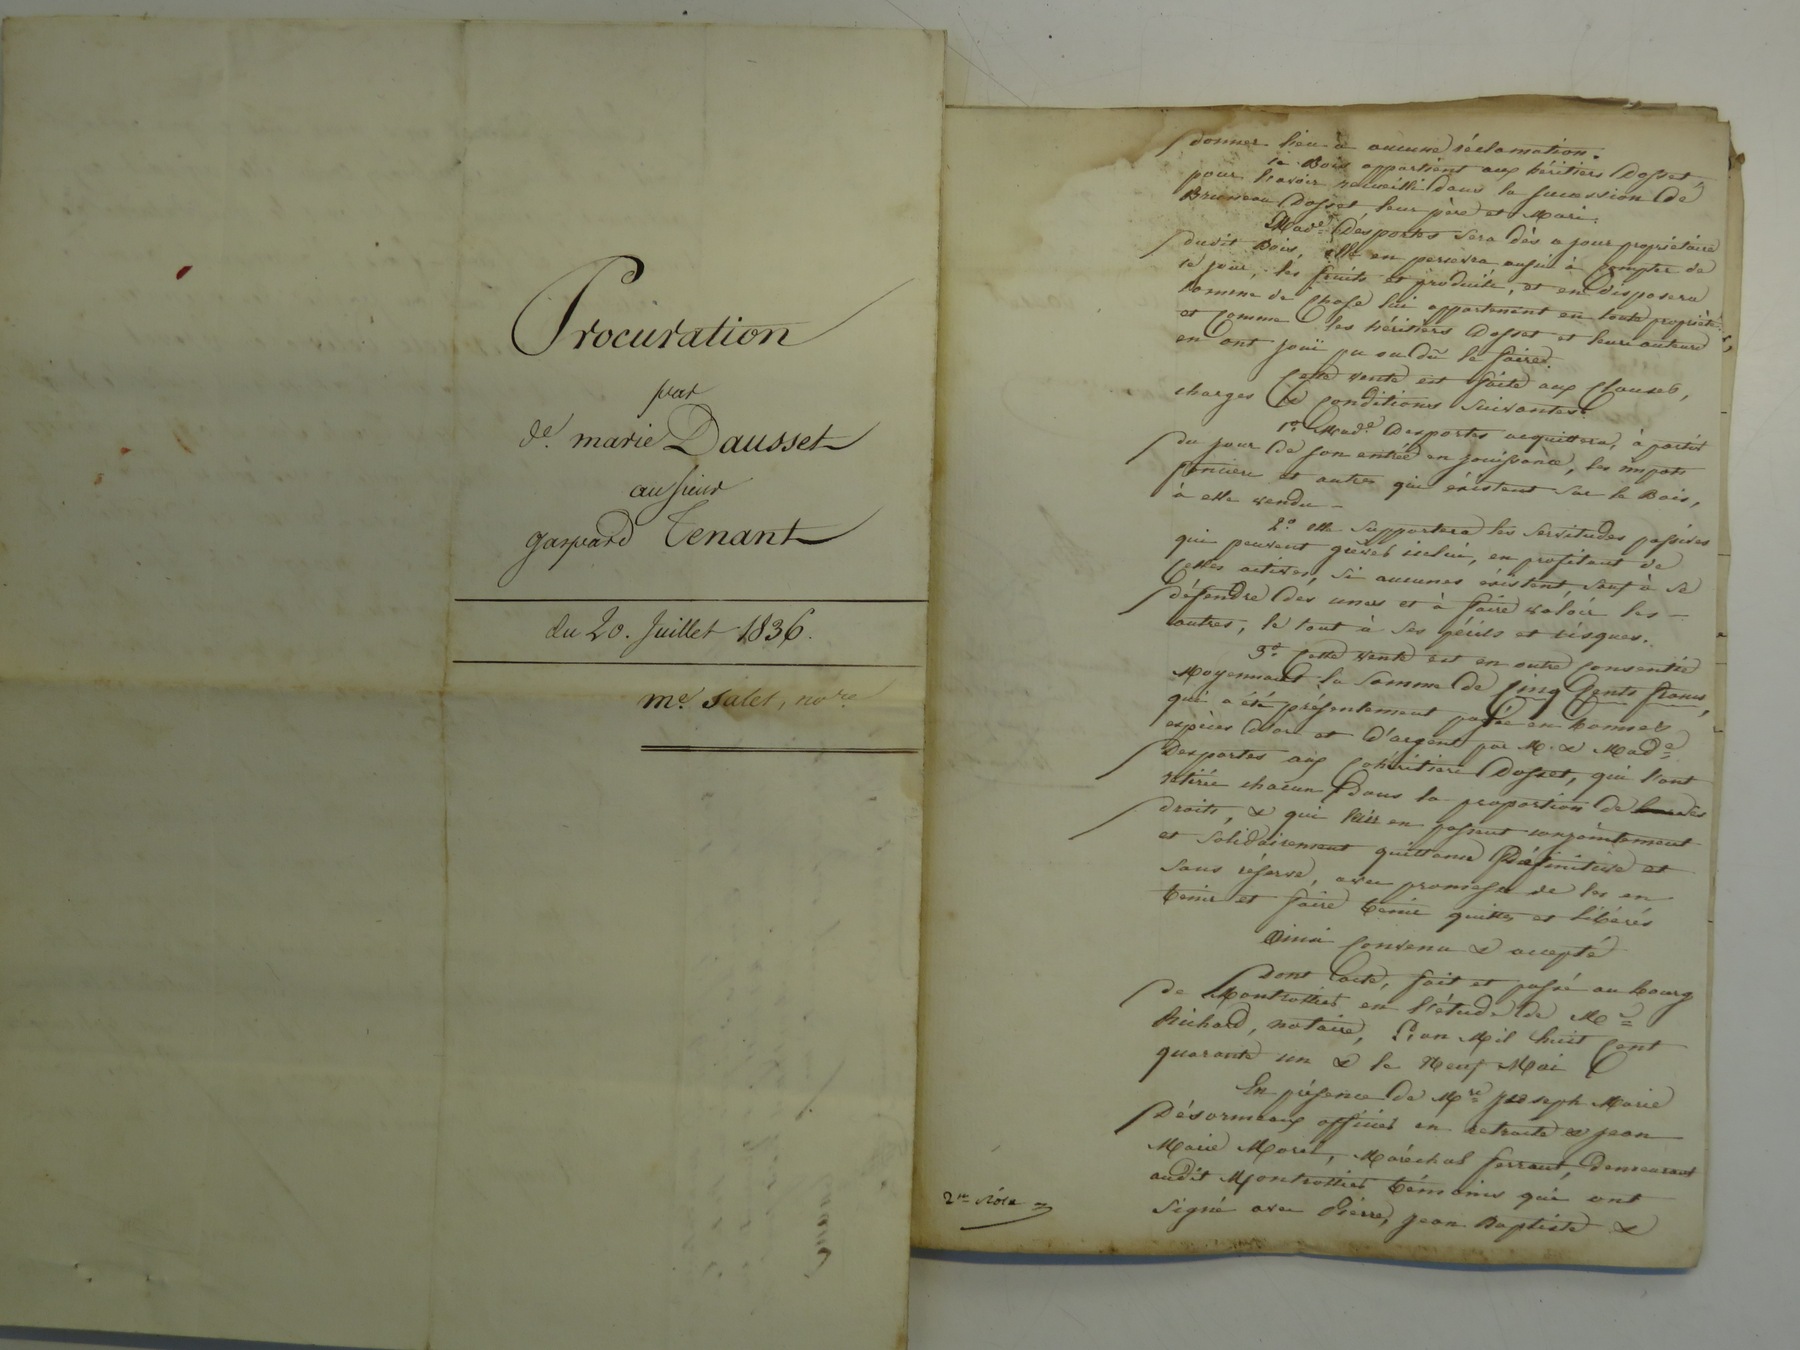 Procuration
par
de. marie Dausset
au sieur
gaspard Tenant
du 20. Juillet 1836.
me. Salet, nore.
donner lieu à aucune réclamation.
Ce Bois appartient aux héritiers Dosset
pour l'avoir recueilli dans la succession de
Dosset leur père et Mari.
Made. Desportes sera dès ce jour propriétaire
dudit Bois, elle en percevra aussi à compter de
ce jour, les fruits et produits, et en disposera
comme de chose lui appartenant en toute propriété
et comme les héritiers Dosset et leurs auteurs
en ont joui pu ou dû le faire.
Cette vente est faite aux Clauses,
charges & conditions suivantes.
1o. Made. Desportes acquittera, à partir
du jour de son entrée en jouissance, les impots
fonciers et autres qui existent sur le Bois,
à elle vendu -
2o. elle supportera les servitudes passives
qui peuvent grever icelui, en profitant de
celles actives, si aucunes existent, sauf à se
défendre des unes et à faire valoir les -
autres, le tout à ses périls et risques.
3o. Cette vente est en outre consentie
Moyennant la somme de Cinq Cents francs,
qui a été présentement payée en bonnes
espèces d'or et d'argent par M. & Made
Desportes aux cohéritiers Dosset, qui l'ont
retirée chacun dans la proportion de
droits, & qui en passent conjointement
et solidairement quittance Définitive et
sans réserve, avec promesse de les en
tenir et faire tenir quittes et libérés
Ainsi convenu & accepté
Dont acte, fait et passé au bourg
de Montrottier en l'étude de Me
Richard, notaire, L'an Mil huit Cent
quarante un & le Neuf Mai
En présence de Mre Joseph Marie
Désormeaux officier en retraite & jean
Marie Morel, Maréchal ferrant, demeurant
audit Montrottier témoins qui ont
signé avec Pierre, jean Baptiste &
2me Rôle